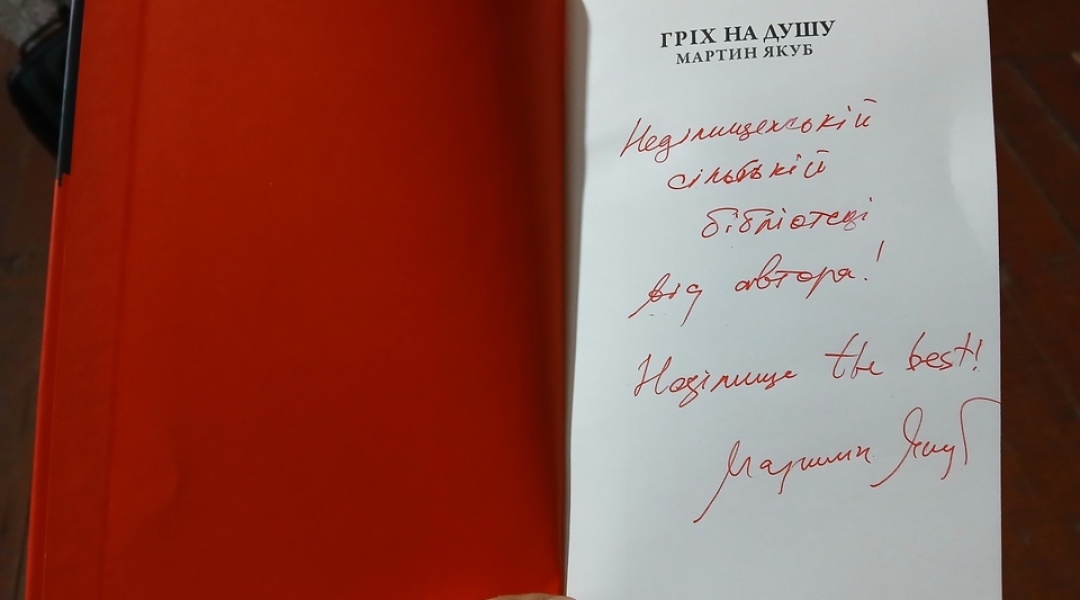 ГРІХ НА ДУШУ
МАРТИН ЯКУБ
Неділищенській
сільській
бібліотеці
від автора!
Неділище the best!
Мартин Якуб